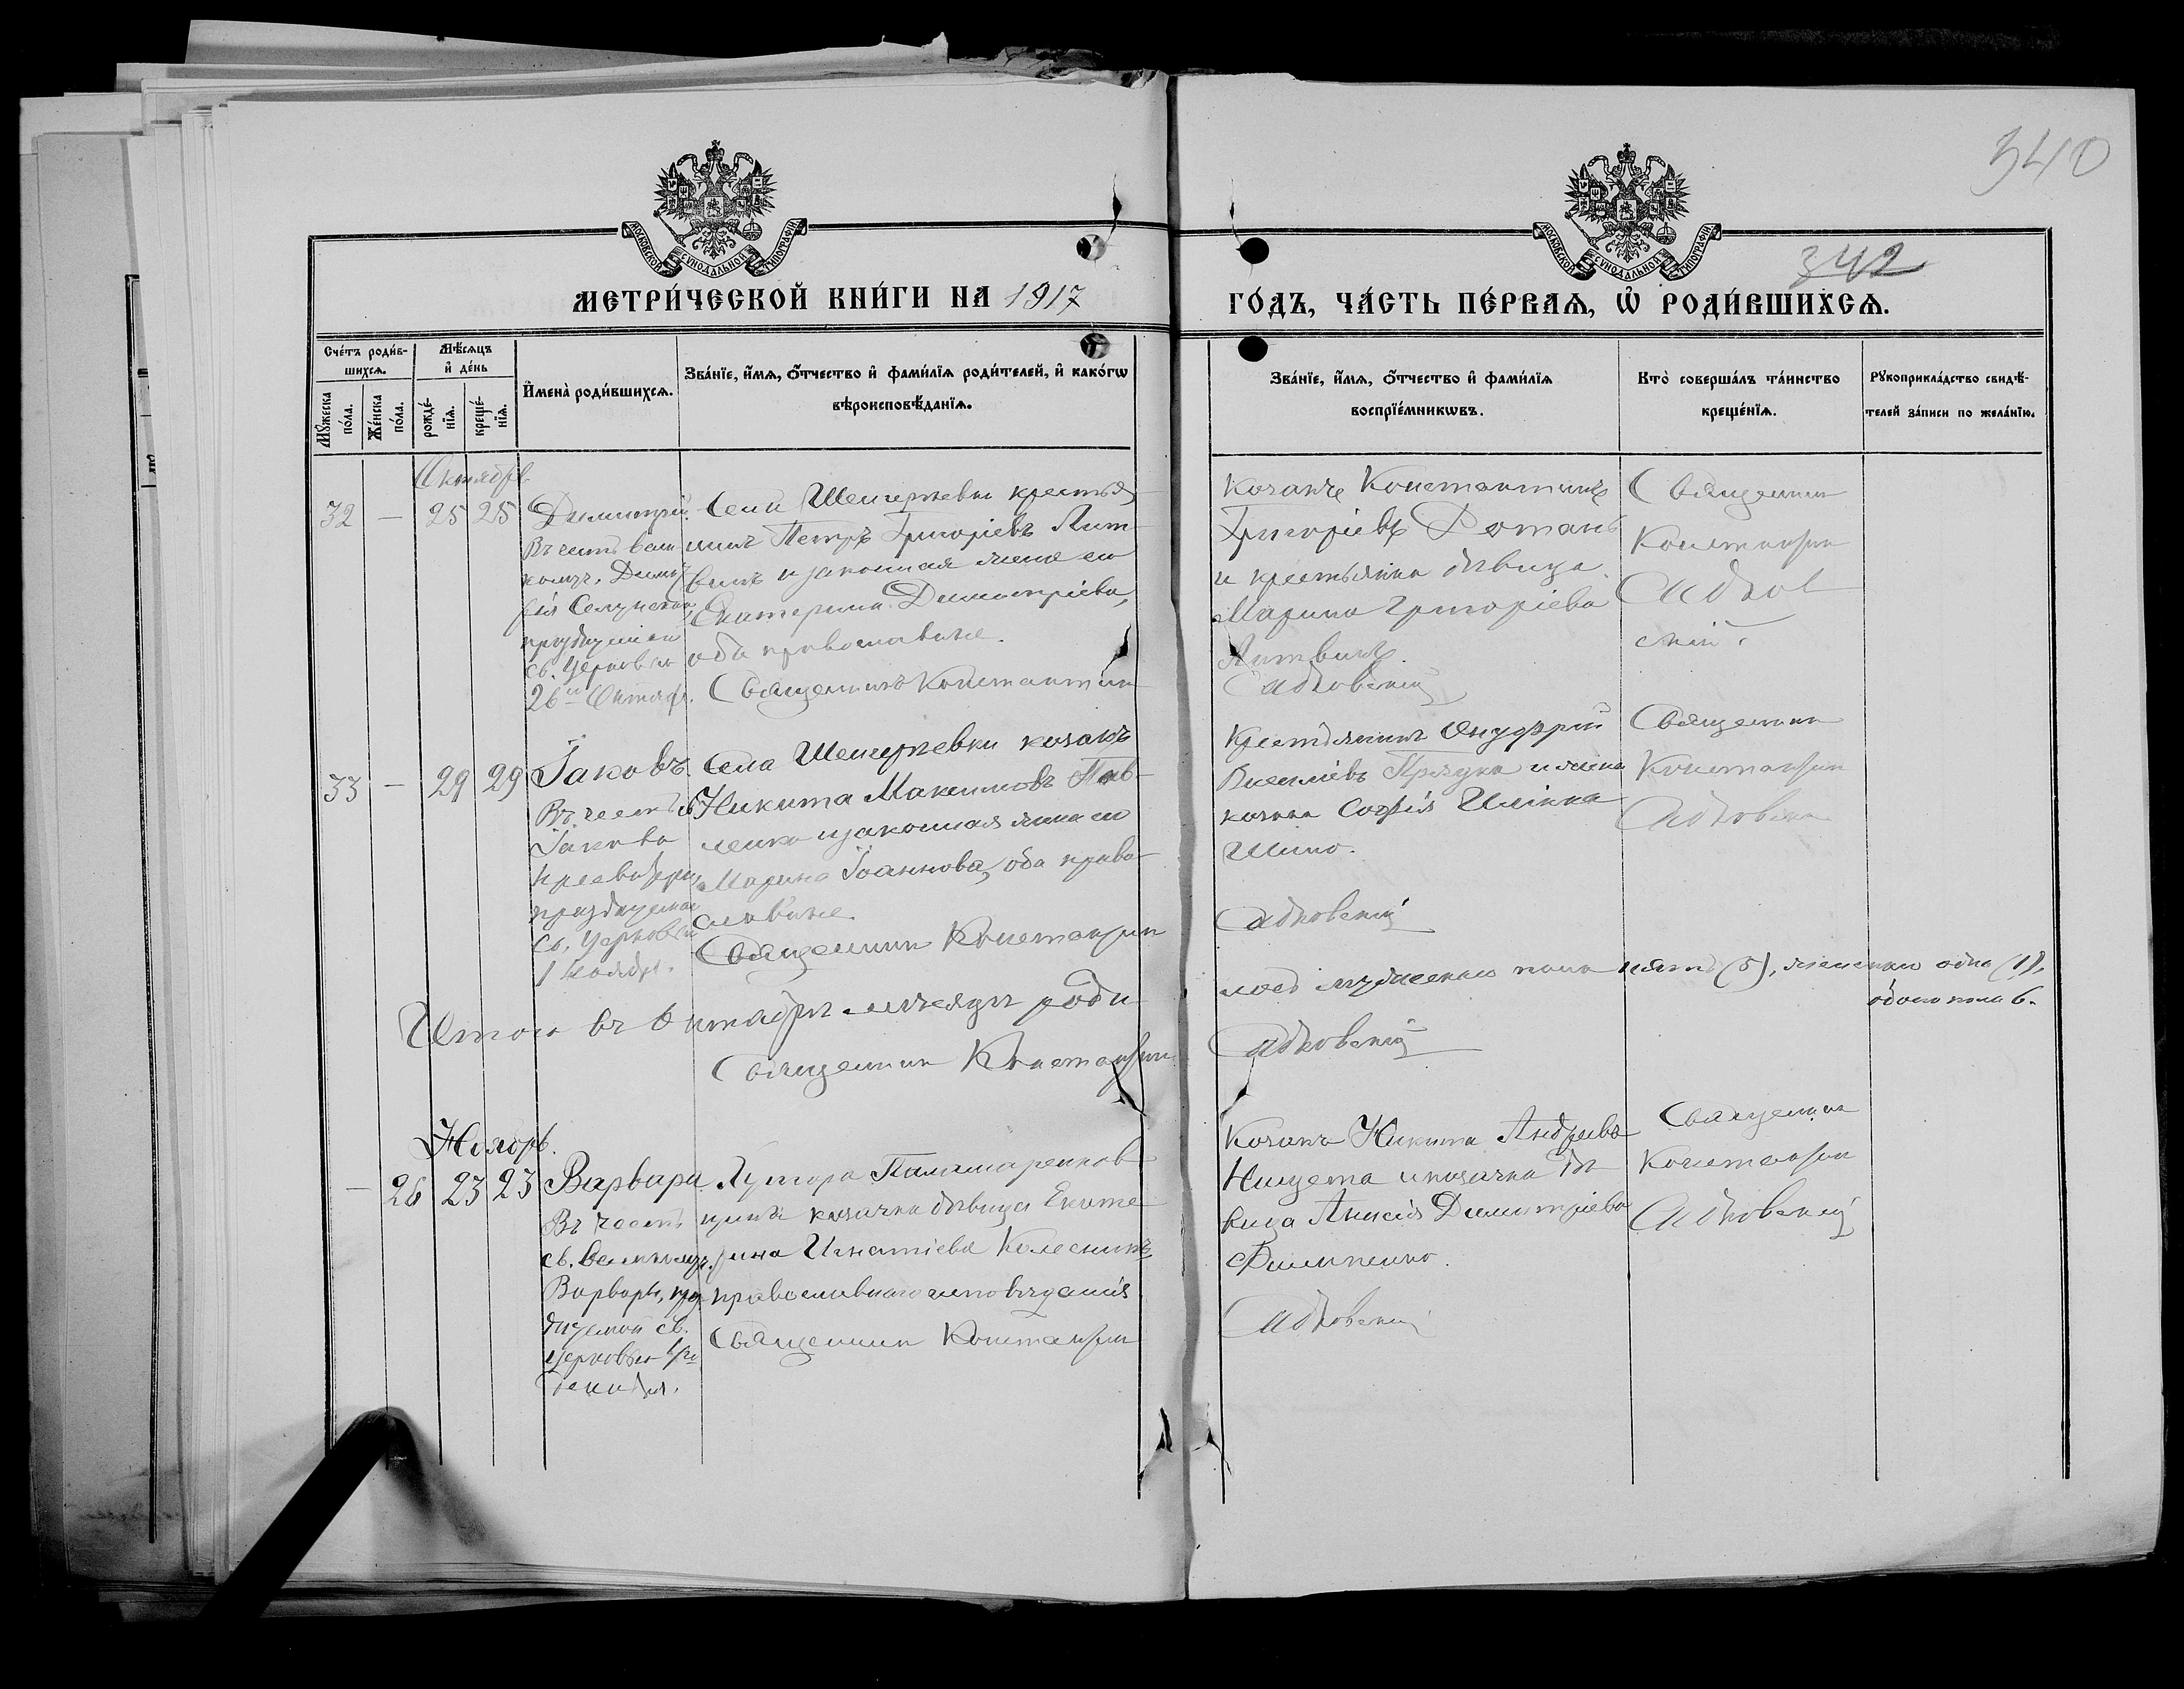 340
342
МОСКОВСКОЙ СѴНОДАЛЬНОЙ ТИПОГРАФІИ
МОСКОВСКОЙ СѴНОДАЛЬНОЙ ТИПОГРАФІИ
МЕТРИ́ЧЕСКОЙ КНИ́ГИ НА 1917
ГО́ДЪ, ЧА́СТЬ ПЕ́РВАѦ, Ѡ҆ РОДИ́ВШИХСѦ.
Сче́тъ роди́в-
шихсѧ.
Мѣ́сѧцъ
и҆ де́нь
Мꙋ́жеска
по́ла.
Же́нска
по́ла.
рожде́-
нїѧ.
креще́-
нїѧ.
И҆мена̀ роди́вшихсѧ.
Зва́нїе, и҆́мѧ, ѻ҆́тчество и҆ фами́лїѧ роди́телей, и҆ како́гѡ
вѣроисповѣ́данїѧ.
Зва́нїе, и҆́мѧ, ѻ҆́тчество и҆ фами́лїѧ
воспрїе́мникѡвъ.
Кто̀ соверша́лъ та́инство
креще́нїѧ.
Рꙋкоприкла́дство свидѣ́-
телей за́писи по жела́нїю.
Октябрь
32 — 25 25
Димитрій.
Въ честь вели
комуч. Димит
рія Селунскаго,
празднуемаго
св. Церковью
26го Октября.
Села Шенгерѣевки крестья
нинъ Петръ Григоріевъ Лит
винъ и законная жена его
Екатерина Димитріева,
оба православные.
Священникъ Константин
Козакъ Константинъ
Григоріевъ
и крестьянка дѣвица
Марина Григоріева
Литвинъ.
Садковскій
Священник
Константин
Садков
скій.
33 — 29 29
Іаковъ.
Въ честь св.
Іакова
празднуемаго
св. Церковью
1 Ноября.
Села Шенгерѣевки козакъ
Никита Максимовъ Пав-
ленко и законная жена его
Марина Іоаннова, оба право-
славные.
Священник Константин
Крестьянинъ Онуфрій
Василіевъ Прядка и жена
козака Софія Ильина
Шило.
Садковскій
Священник
Константин
Садковскій
Итого въ Октябрѣ мѣсяцѣ роди
лось мужескаго пола пять (5), женскаго одна (1),
обоего пола 6.
Священник Константин
Садковскій
Ноябрь.
— 26 23 23
Варвара
Въ честь
св. великомуч.
Варвары, праз
днуемой св.
Церковью 4го
Декабря.
Хутора Паламаренков
щины козачка дѣвица Екате
рина Игнатіева Колесникъ
православнаго исповѣданія
Священник Константин
Козакъ Никита Андреевъ
Нищета и козачка дѣ
вица Анисія Димитріева
Филипенко.
Садковскій
Священник
Константин
Садковскій